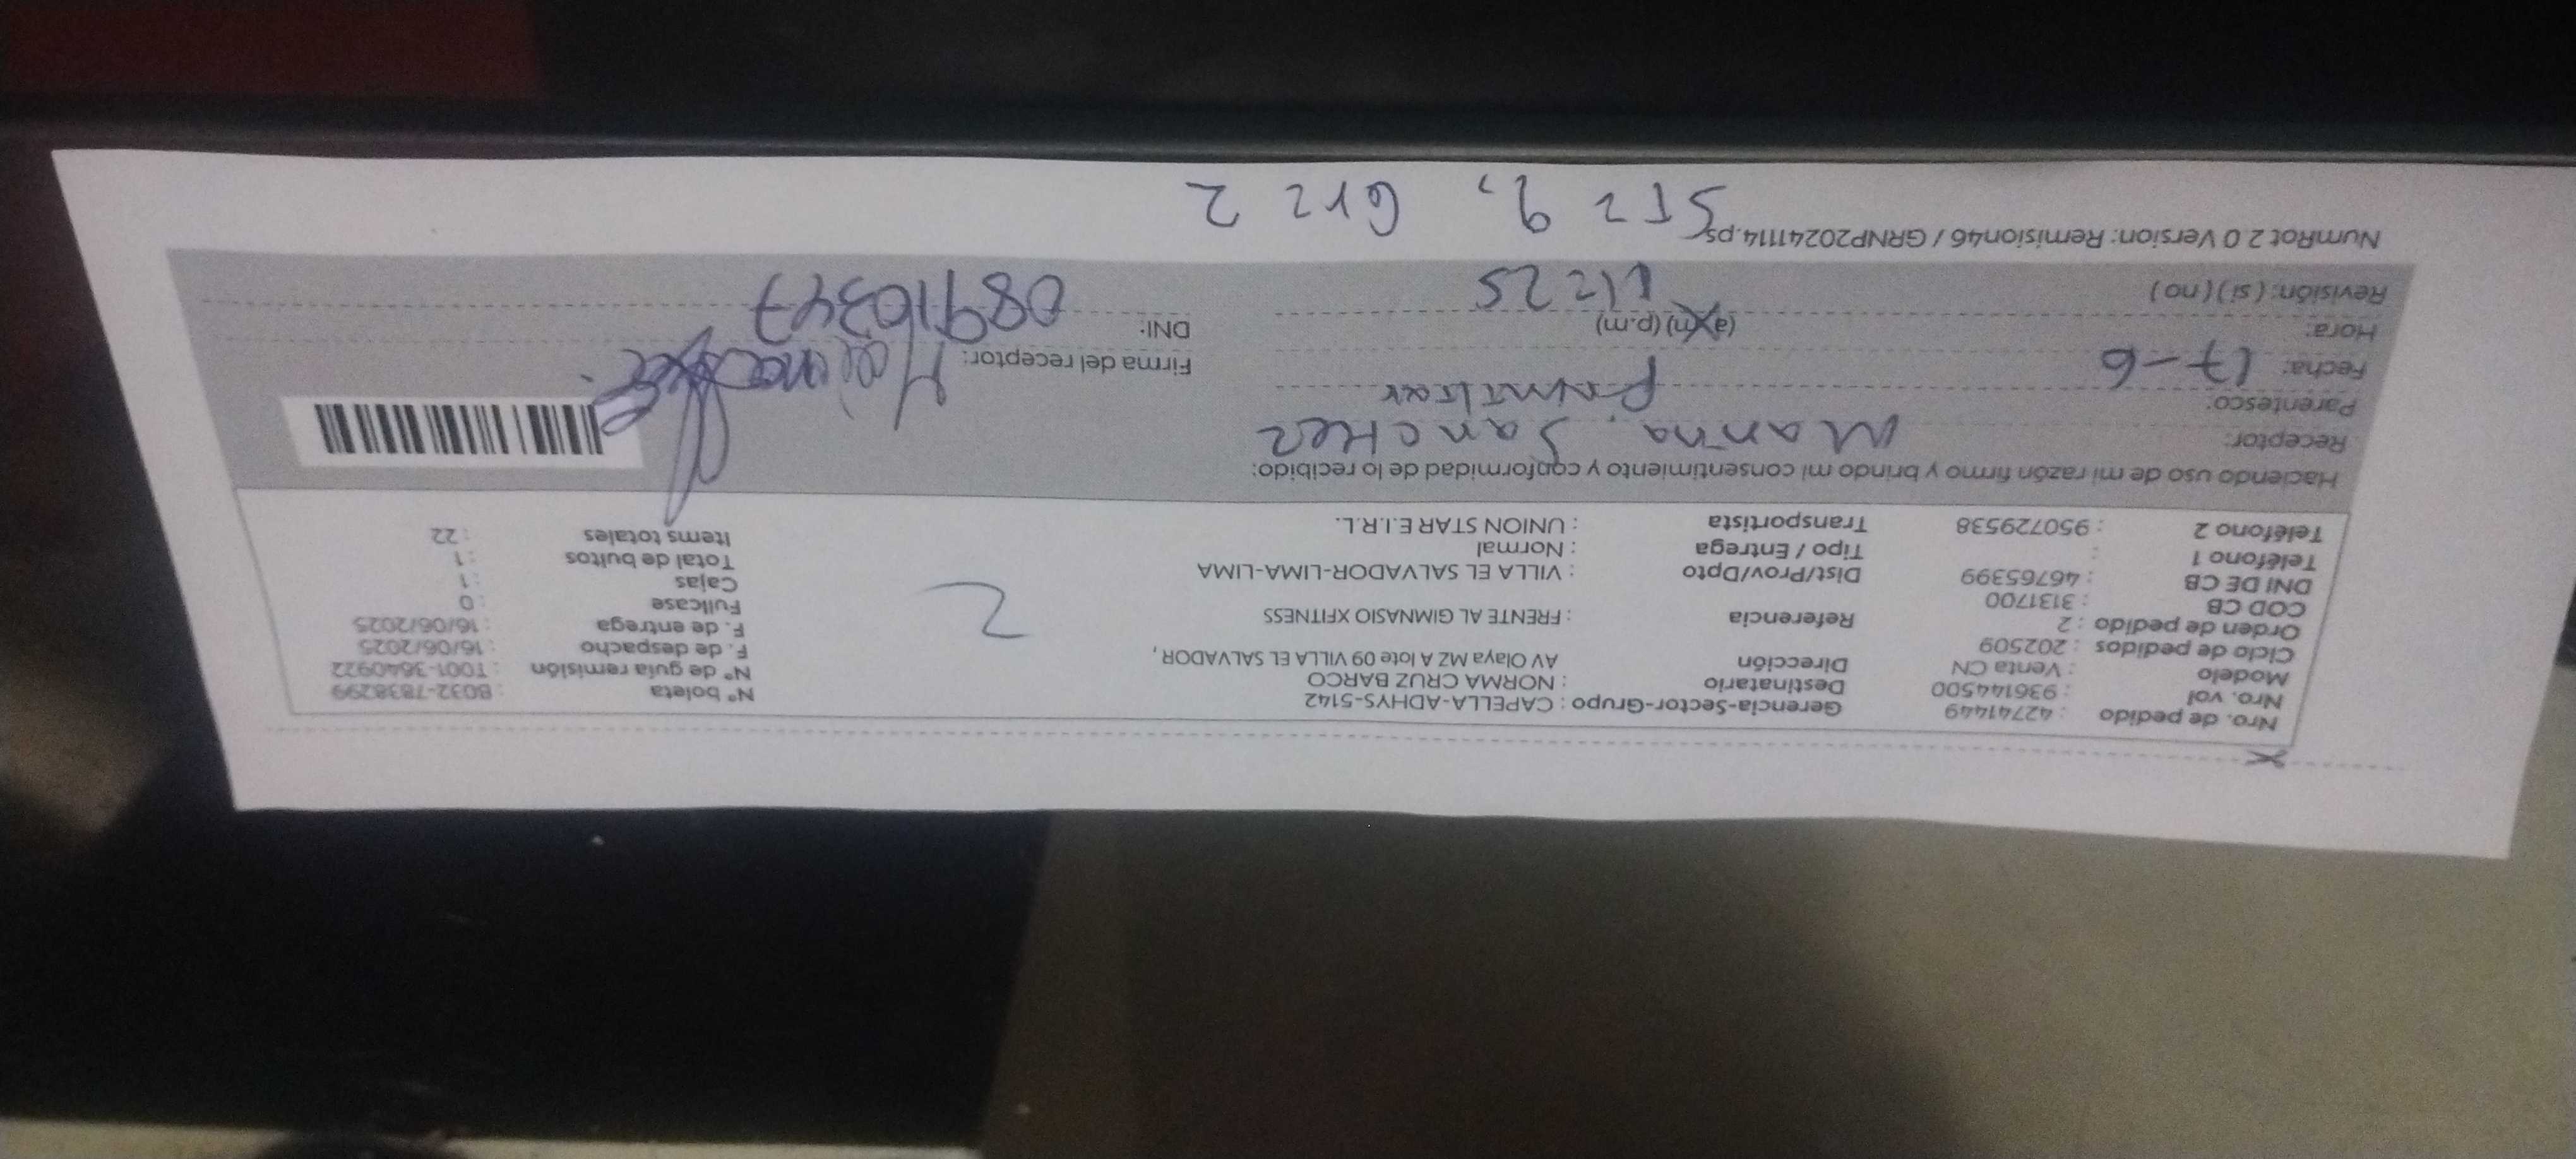 Nro. de pedido : 42741449
Nro. vol : 936144500
Modelo : Venta CN
Ciclo de pedidos : 202509
Orden de pedido : 2
COD CB : 3131700
DNI DE CB : 46765399
Teléfono 1 :
Teléfono 2 : 950729538
Gerencia-Sector-Grupo : CAPELLA-ADHYS-5142
Destinatario : NORMA CRUZ BARCO
Dirección AV Olaya MZ A lote 09 VILLA EL SALVADOR,
Referencia : FRENTE AL GIMNASIO XFITNESS
Dist/Prov/Dpto : VILLA EL SALVADOR-LIMA-LIMA
Tipo / Entrega : Normal
Transportista : UNION STAR E.I.R.L.
2
N° boleta : B032-7838299
N° de guía remisión : T001-3640922
F. de despacho : 16/06/2025
F. de entrega : 16/06/2025
Fullcase : 0
Cajas : 1
Total de bultos : 1
Items totales : 22
Haciendo uso de mi razón firmo y brindo mi consentimiento y conformidad de lo recibido:
Receptor: Marina Sanchez
Parentesco: Familiar
Fecha: 17-6
Hora: (a.m) (p.m)
Revisión: ( si ) ( no )
Firma del receptor:
DNI: 08910347
NumRot 2.0 Version: Remision46 / GRNP20241114.ps